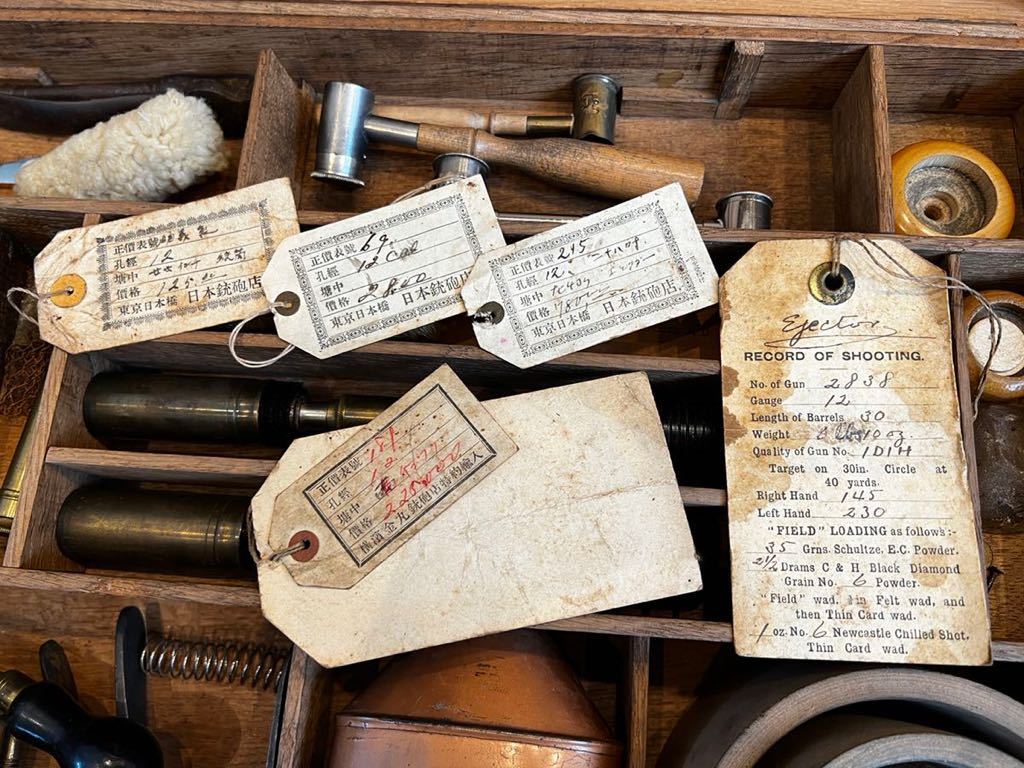 正價表號
孔徑 12
塘中
價格
東京日本橋 日本銃砲店
正價表號 69
孔徑 12 Cal
塘中
價格 2800
東京日本橋 日本銃砲店
正價表號 215
孔徑 12
塘中
價格 7800
東京日本橋 日本銃砲店
正價表號 181
孔徑 12
塘中
價格 22000
金丸銃砲店
Ejector
RECORD OF SHOOTING.
No. of Gun 2838
Gauge 12
Length of Barrels 30
Weight 6 lbs 10 oz.
Quality of Gun No. 1D1H
Target on 30in. Circle at
40 yards.
Right Hand 145
Left Hand 230
"FIELD" LOADING as follows:-
35 Grns. Schultze, E.C. Powder.
2½ Drams C & H Black Diamond
Grain No. 6 Powder.
"Field" wad. in Felt wad, and
then Thin Card wad.
1 oz. No. 6 Newcastle Chilled Shot.
Thin Card wad.